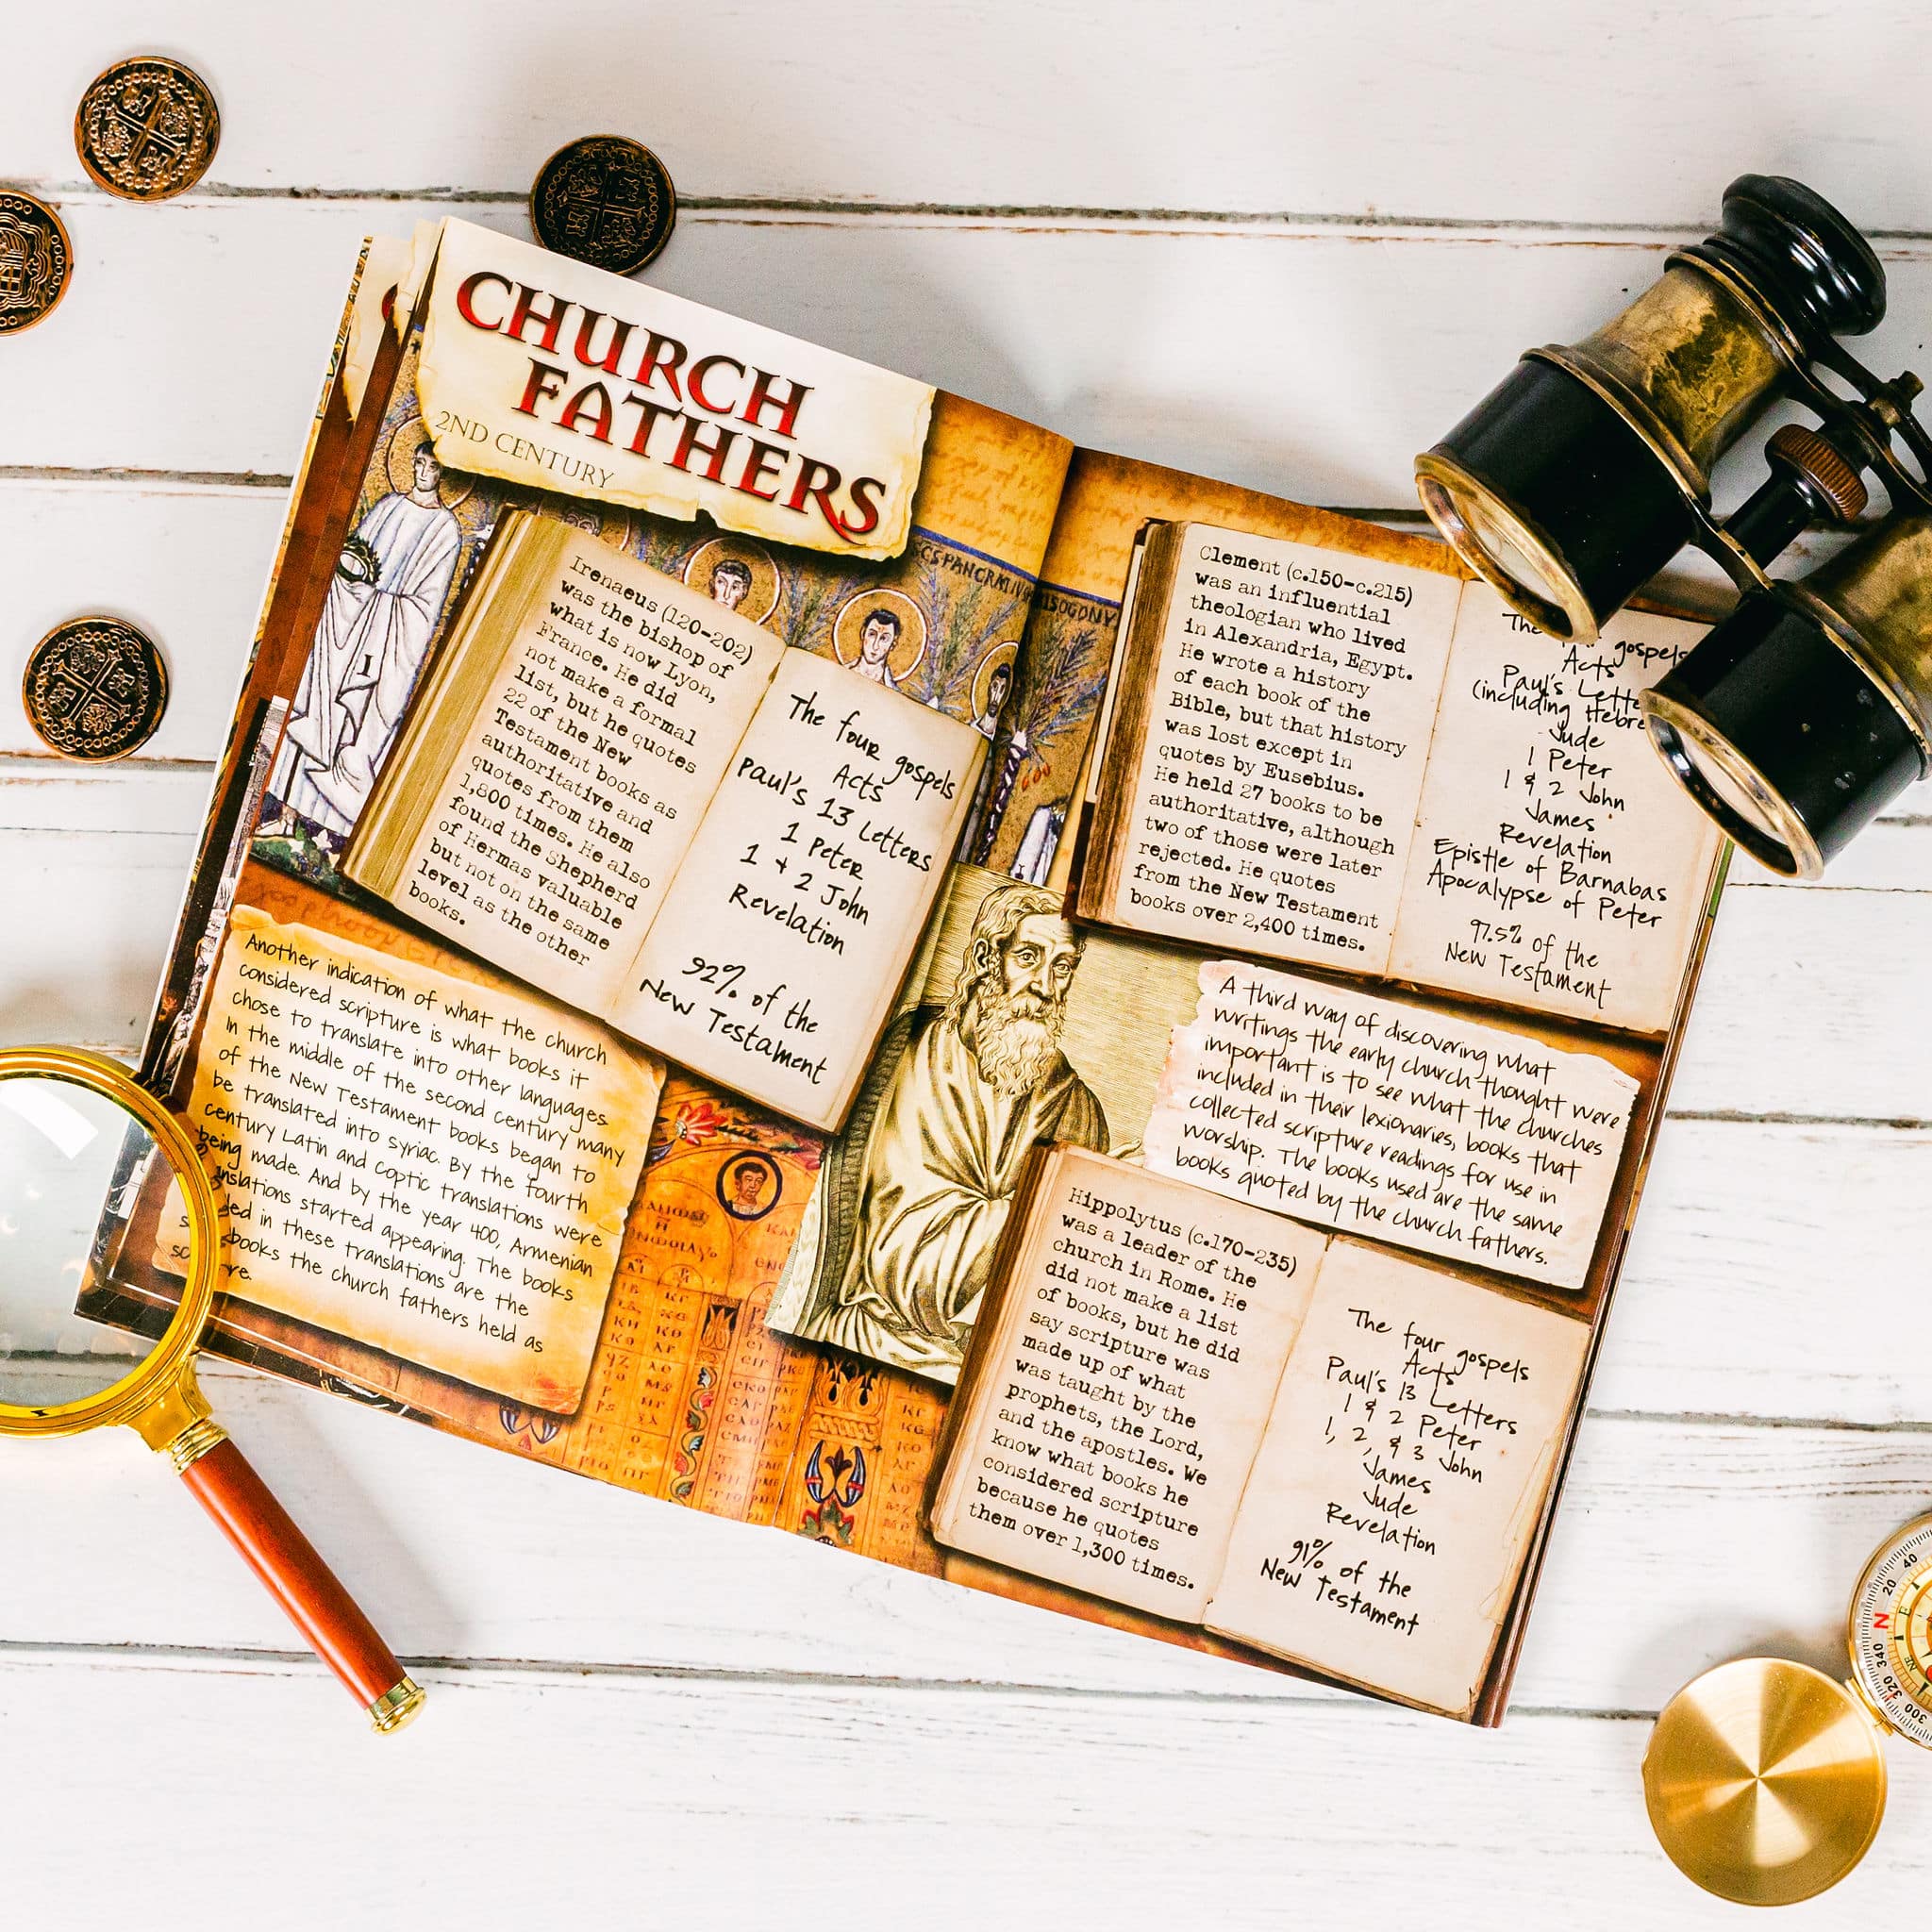 CHURCH
FATHERS
2ND CENTURY
Irenaeus (120-202)
was the bishop of
what is now Lyon,
France. He did
not make a formal
list, but he quotes
22 of the New
Testament books as
authoritative and
quotes from them
1,800 times. He also
found the Shepherd
of Hermas valuable
but not on the same
level as the other
books.
The four gospels
Acts
Paul's 13 Letters
1 Peter
1 + 2 John
Revelation
92% of the
New Testament
Another indication of what the church
considered scripture is what books it
chose to translate into other languages.
In the middle of the second century many
of the New Testament books began to
be translated into Syriac. By the fourth
century Latin and Coptic translations were
being made. And by the year 400, Armenian
translations started appearing. The books
in these translations are the
books the church fathers held as
Clement (c.150-c.215)
was an influential
theologian who lived
in Alexandria, Egypt.
He wrote a history
of each book of the
Bible, but that history
was lost except in
quotes by Eusebius.
He held 27 books to be
authoritative, although
two of those were later
rejected. He quotes
from the New Testament
books over 2,400 times.
The gospels
Acts
Paul's
(including
Jude
1 Peter
1 & 2 John
James
Revelation
Epistle of Barnabas
Apocalypse of Peter
97.5% of the
New Testament
A third way of discovering what
writings the early church thought were
important is to see what the churches
included in their lexionaries, books that
collected scripture readings for use in
worship. The books used are the same
books quoted by the church fathers.
Hippolytus (c.170-235)
was a leader of the
church in Rome. He
did not make a list
of books, but he did
say scripture was
made up of what
was taught by the
prophets, the Lord,
and the apostles. We
know what books he
considered scripture
because he quotes
them over 1,300 times.
The four gospels
Acts
Paul's 13 Letters
1 & 2 Peter
1, 2, & 3 John
James
Jude
Revelation
91% of the
New Testament
N
40
20
340
320
300